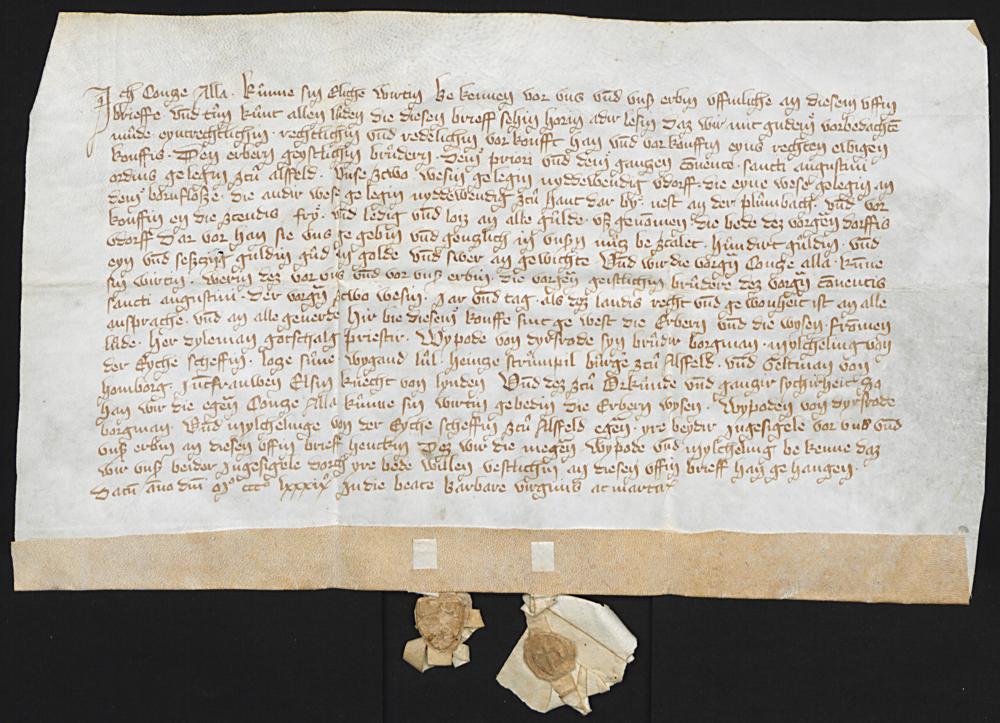 Ich Concze Alla · kunne sin Eliche wirtin be kennen vor uns und unß erbin uffinliche an diesem uffin
brieffe · und tun kunt allen luden die diesen brieff sehin horin adir lesin daz wir mit gudem vorbedachte
mude · eyntrechtlichin · rechtlichin und redelichin vor koufft han und vor kouffin eyns rechten ebigen
kouffis · Den erbern geystlichin brudern · dem priori und dem ganczen Convente · sancti augustini
ordins gelegin zcu alsfeld · Unse zcwo wesin gelegin nyddewendig udorff · die eyne wese gelegin an
dem bornfloße · die andir wese ge legin nyddewendig zcu hant dar by · nest an der plumbach · und vor
kouffin en die zcendis fry · und ledig und loiz an alle gulde · uß genomen die bede dez vorgen dorffis
udorff Dar vor han sie uns ge gebin und genczlich in unßn nucz be zcalet · hundirt guldin · und
eyn und seßczig guldin gud in golde und swer an gewichte Und wir die vorgn Concze alla · kune
sin wirtin · wern dez vor uns und vor unß erbin · die vorgen geistlichin brudere dez vorgn conventis
sancti augustini · der vorgn zcwo wesin · Jar und tag · als dez landis recht und ge wonheit ist an alle
ansprache · und an alle geuerde hir bie diesem kouffe sint ge west die Erbern und die wysen · fromen
lude · her dyleman gotschalg priestir · Wypode von dyrsrode syn brudir borgman · mylcheling von
der Eyche scheffin · loze sune · wygand lul · heincze strumpil burge zcu Alsfeld · und Geltman von
homborg · Juncfrauwen Elsin knecht von lynden Und dez zcu Orkunde und ganczir sychirheit So
han wir die egen Concze Alla kunne sin wirtin gebedin die Erbern wysen · Wypoden von dyrsrode
borgman · Und mylchelinge von der Eyche scheffin zcu Alsfeld egen · yre beydir Ingesigele vor uns und
unß erbin an diesen uffin brieff hencken Dez wir die megen Wypode und mylcheling be kenne daz
wir unß beidir Ingesigele dorch yre bede willen vestlichin an diesen uffin brieff han ge hangen ·
Datu ano dni mo ccco lxxxixo In die beate Barbare virginis at martar